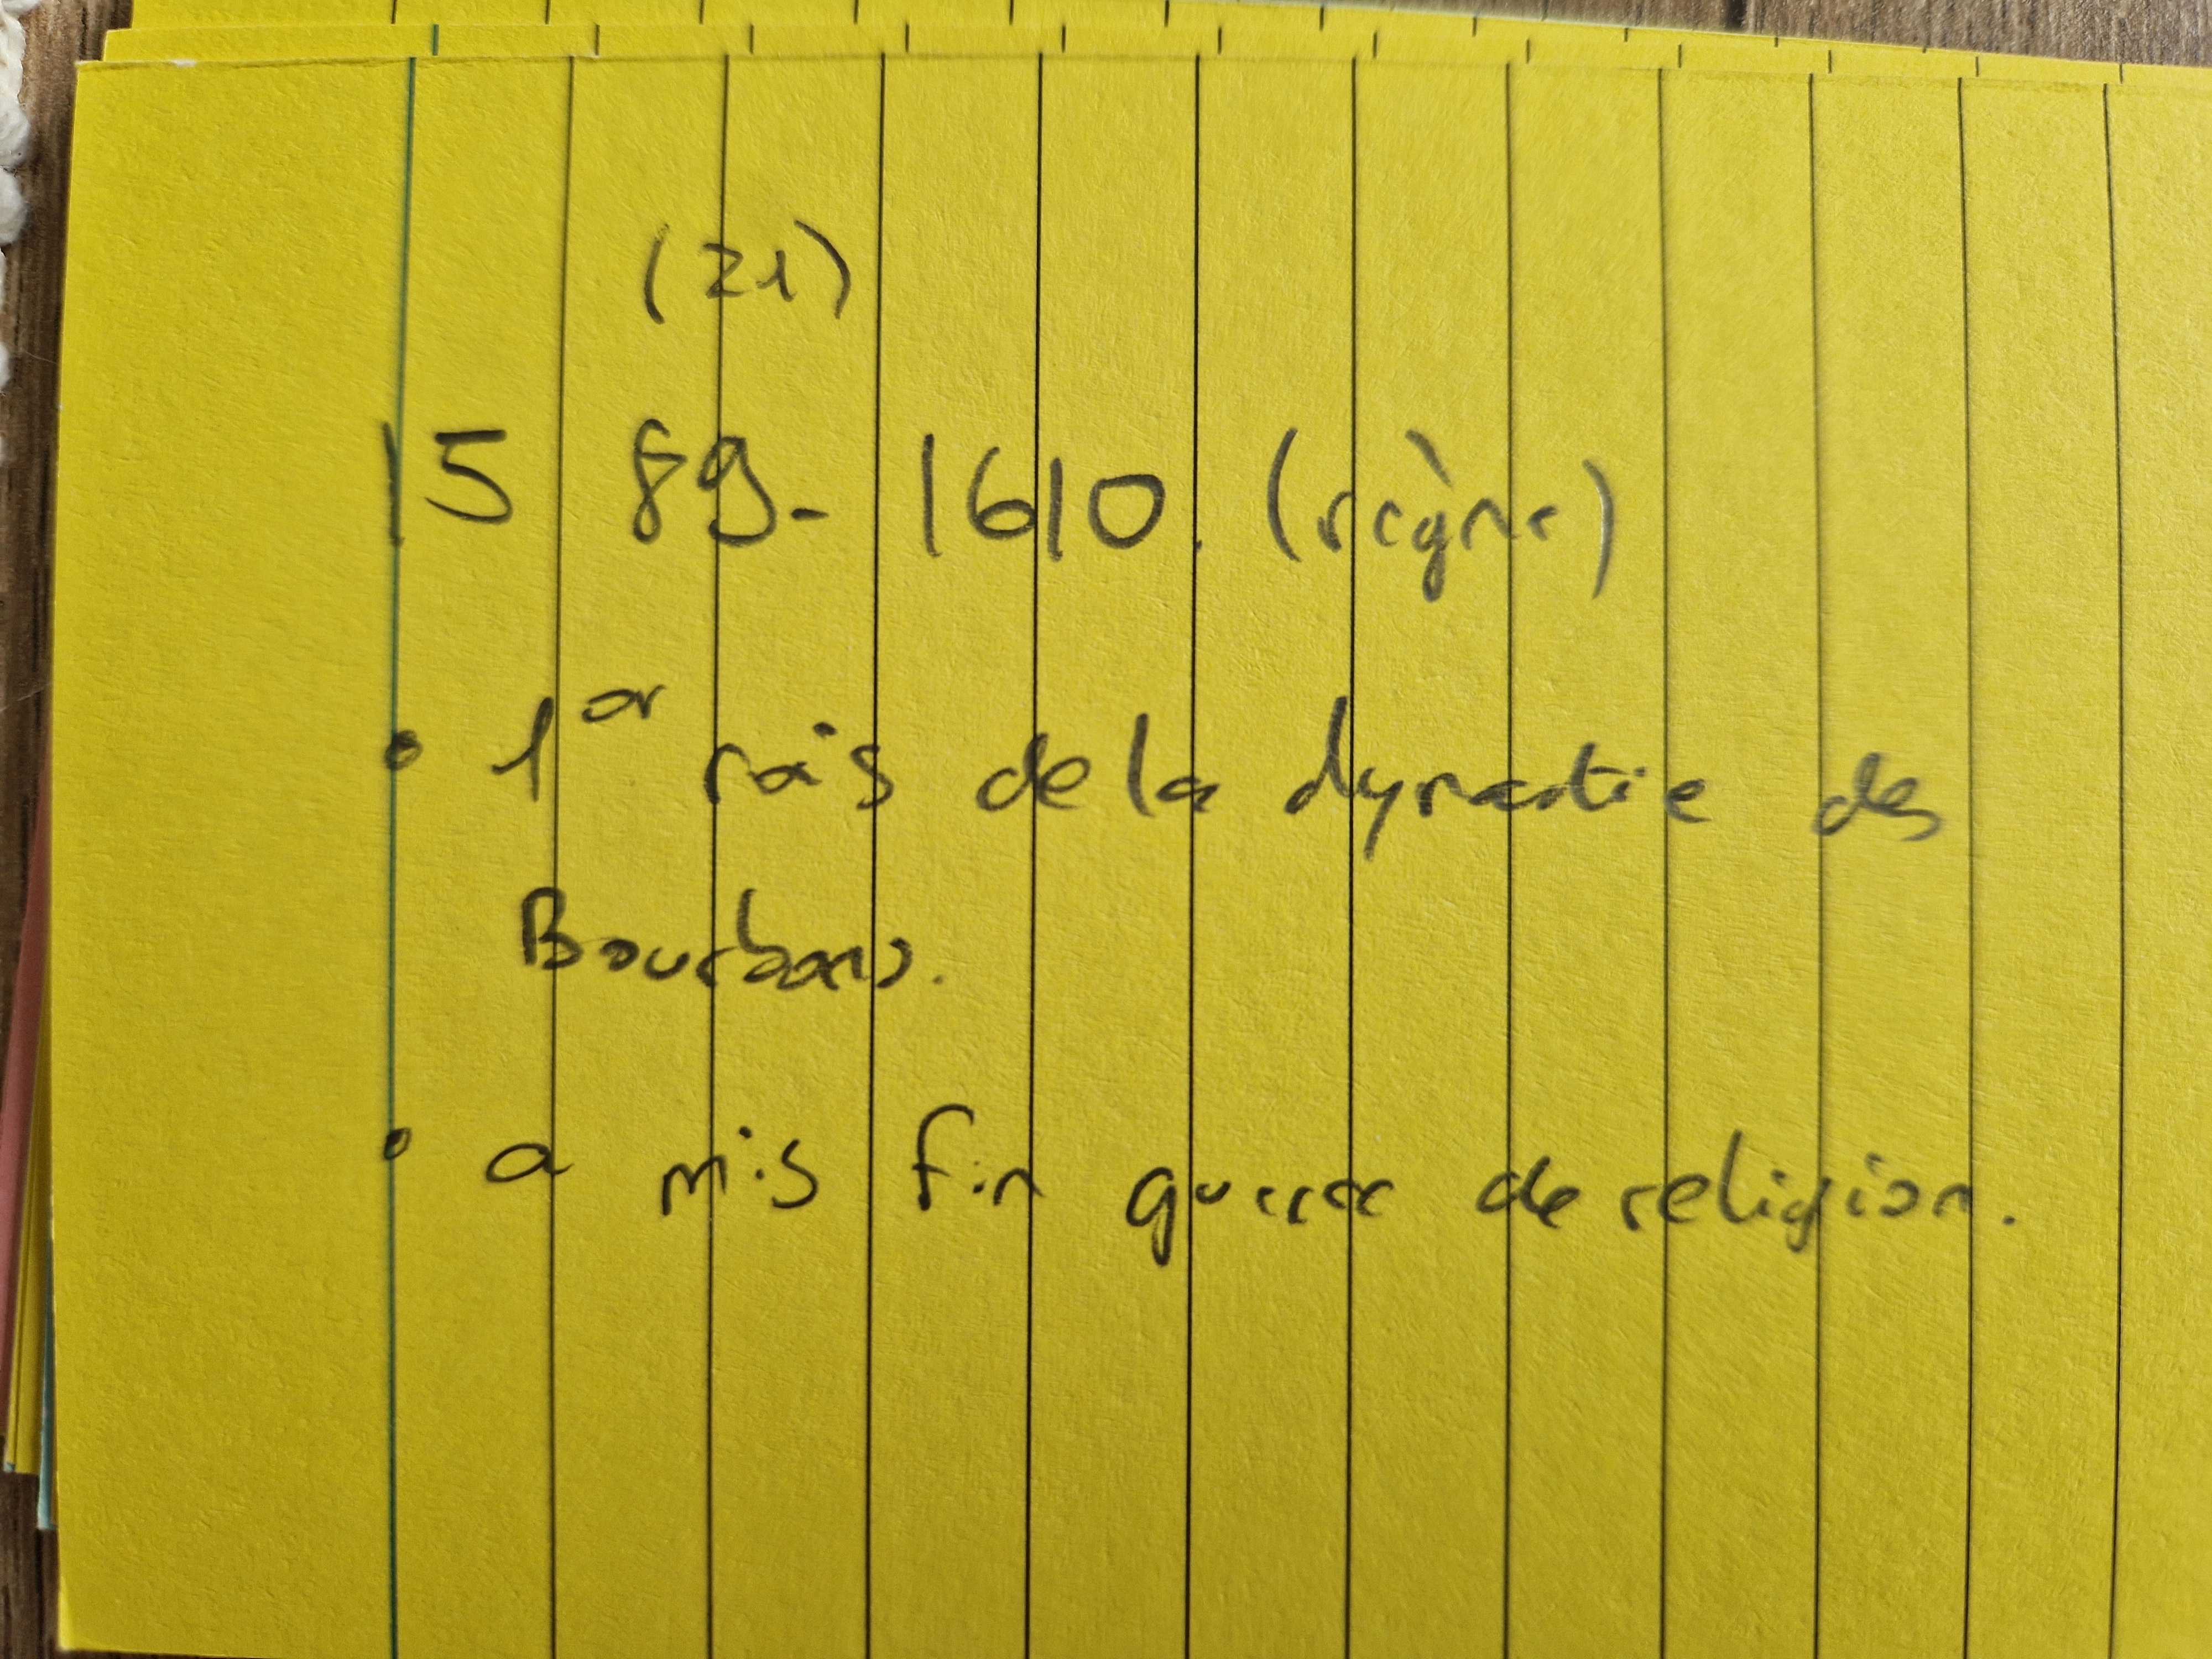 (21)
1589-1610. (règne)
• 1er rois de la dynastie des
Bourbons.
• a mis fin guerre de religion.